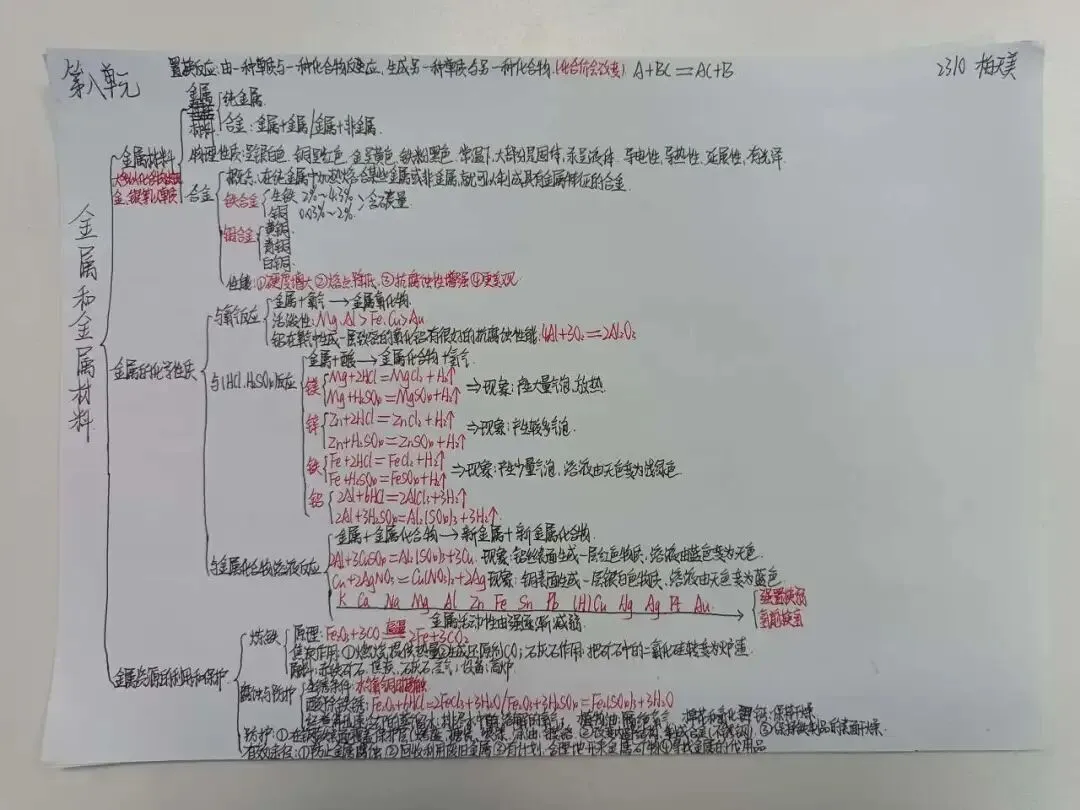 第八单元
置换反应:由一种单质与一种化合物反应,生成另一种单质与另一种化合物.(化合价会改变) A+BC=AC+B
2310 梅天美
金属和金属材料
金属材料
金属材料
纯金属.
合金:金属+金属/金属+非金属.
物理性质:呈银白色.铜呈红色.金呈黄色.铁粉黑色.常温下,大部分是固体,汞是液体.导电性,导热性.延展性,有光泽
合金
概念:在纯金属中加热熔合某些金属或非金属,就可以制成具有金属特征的合金.
铁合金
生铁 2%~4.3%
钢 0.03%~2%
含碳量
铜合金
黄铜
青铜
白铜
性能:①硬度增大②熔点降低.③抗腐蚀性增强④更美观
金属的化学性质
与氧气反应
金属+氧气→金属氧化物.
活泼性:Mg.Al>Fe.Cu>Au.
铝在氧气中生成一层致密的氧化铝有很好的抗腐蚀性能.4Al+3O₂=2Al₂O₃
与HCl.H₂SO₄反应
金属+酸→金属化合物+氢气.
镁
Mg+2HCl=MgCl₂+H₂↑
Mg+H₂SO₄=MgSO₄+H₂↑
⇒现象:产生大量气泡,放热.
锌
Zn+2HCl=ZnCl₂+H₂↑
Zn+H₂SO₄=ZnSO₄+H₂↑
⇒现象:产生较多气泡.
铁
Fe+2HCl=FeCl₂+H₂↑
Fe+H₂SO₄=FeSO₄+H₂↑
⇒现象:产生少量气泡,溶液由无色变为浅绿色
铝
2Al+6HCl=2AlCl₃+3H₂↑
2Al+3H₂SO₄=Al₂(SO₄)₃+3H₂↑
与金属化合物溶液反应
金属+金属化合物→新金属+新金属化合物.
2Al+3CuSO₄=Al₂(SO₄)₃+3Cu.现象:铝丝表面生成一层红色物质.溶液由蓝色变为无色.
Cu+2AgNO₃=Cu(NO₃)₂+2Ag现象:铜表面生成一层银白色物质.溶液由无色变为蓝色
K Ca Na Mg Al Zn Fe Sn Pb (H) Cu Hg Ag Pt Au.
金属活动性由强逐渐减弱.
金属资源的利用和保护
炼铁
原理:Fe₂O₃+3CO 高温 2Fe+3CO₂
焦炭作用:①燃烧,提供热量②生成还原剂CO;石灰石作用:把矿石中的二氧化硅转变为炉渣
原料:赤铁矿石.焦炭.石灰石.空气;设备:高炉
腐蚀与防护
生锈条件:水氧铜接触
酸除铁锈:Fe₂O₃+6HCl=2FeCl₃+3H₂O/Fe₂O₃+3H₂SO₄=Fe₂(SO₄)₃+3H₂O
保持干燥
有效途径:①防止金属腐蚀 ②回收利用废旧金属③有计划.合理地开采金属矿物④寻找金属的代用品